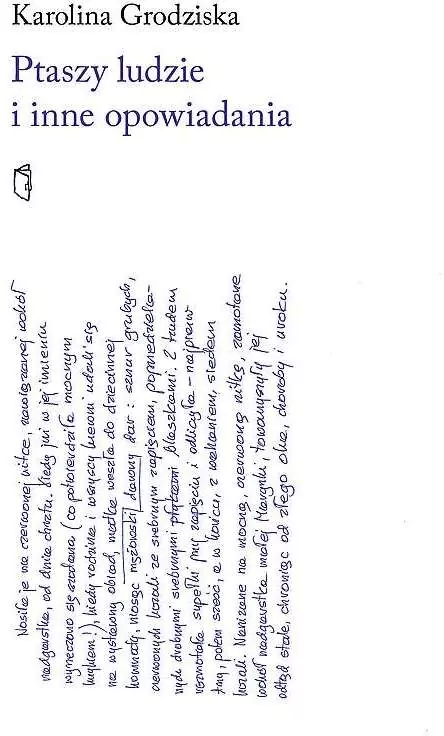 Karolina Grodziska
Ptaszy ludzie
i inne opowiadania
Nosiła je na czerwonej nitce, zawiązanej wokół
nadgarstka, od dnia chrztu. Kiedy już w jej imieniu
wyrzeczono się szatana (co potwierdziła mocnym
krzykiem!), kiedy rodzina i wszyscy krewni udali się
na wystawny obiad, matka weszła do dziecinnej
komnaty, niosąc mężowski dawny dar: sznur grubych,
czerwonych korali ze srebrnym zapięciem, poprzedziela-
nych drobnymi srebrnymi płytkami blaszkami. Z trudem
rozplotała supełki przy zapięciu i odliczyła – najpierw
trzy, potem sześć, a w końcu, z wahaniem, siedem
korali. Nanizane na mocną, czerwoną nitkę, zamotane
wokół nadgarstka małej Marynki, towarzyszyły jej
odtąd stale, chroniąc od złego oka, choroby i uroku.